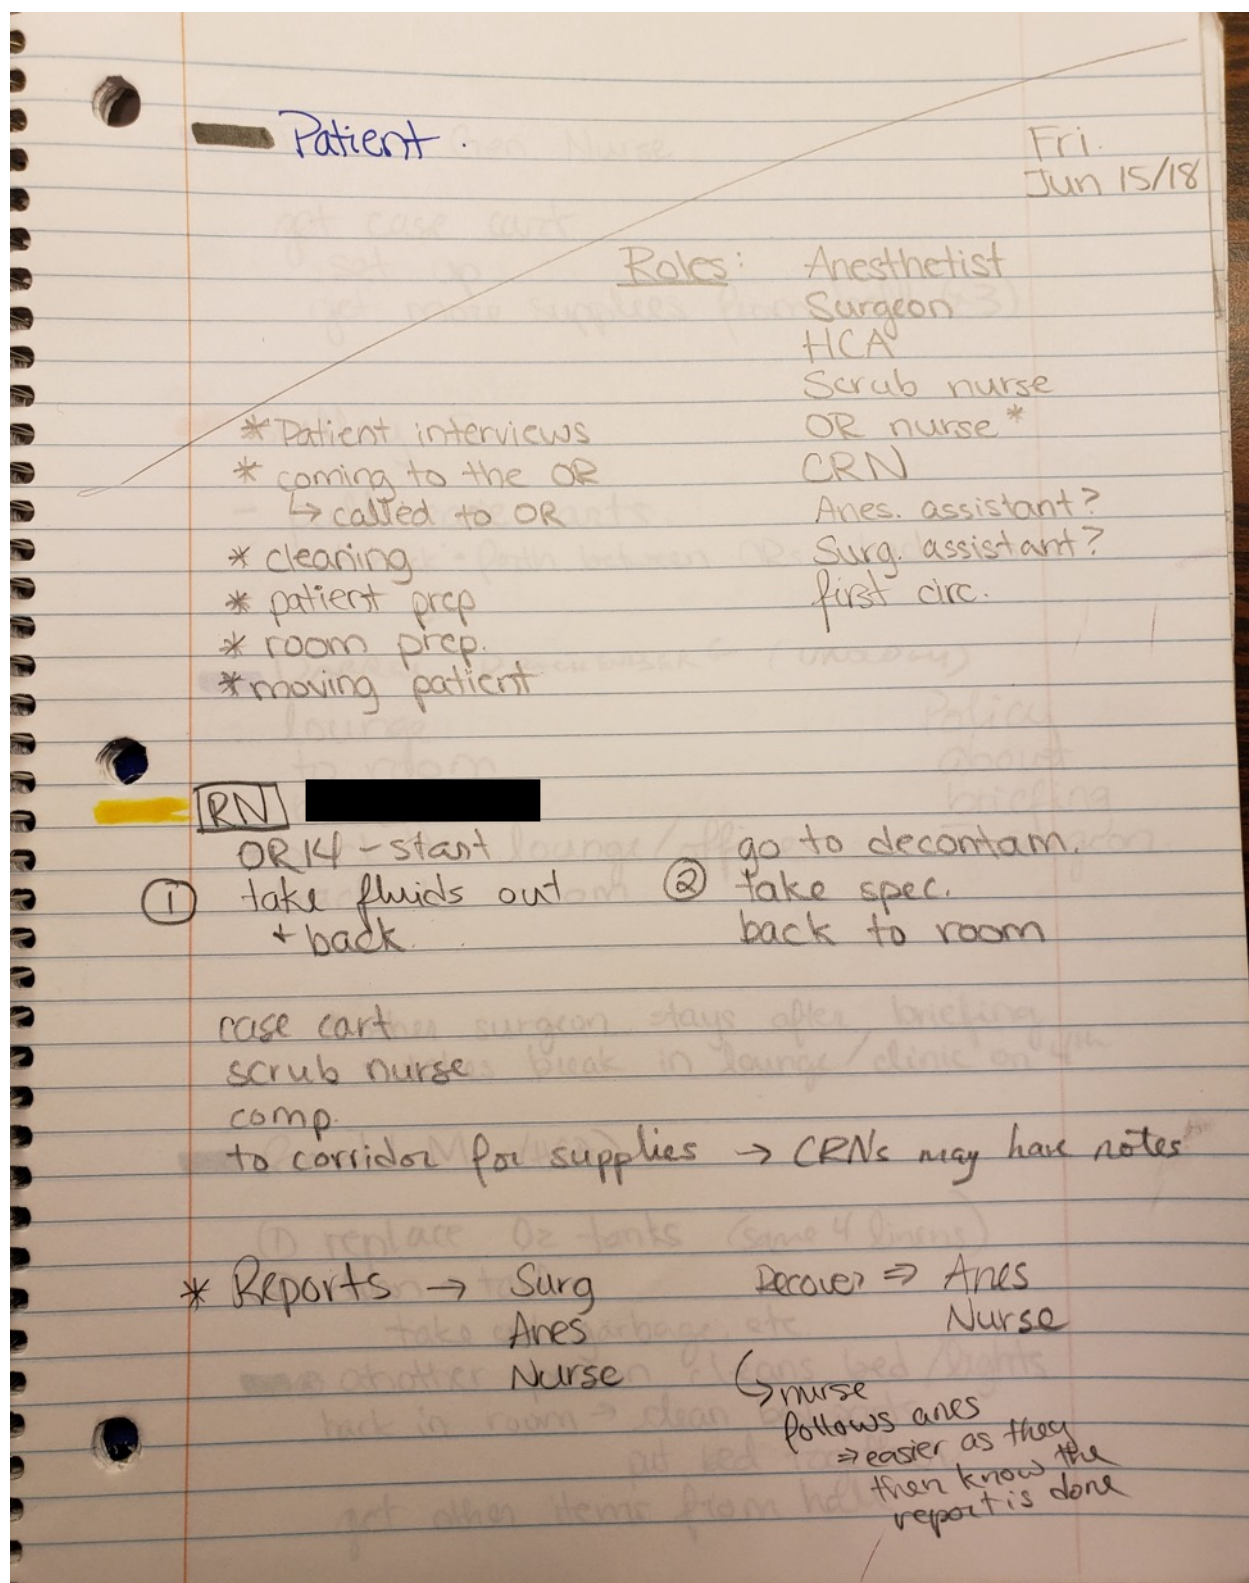 Patient.
Fri.
Jun 15/18
Roles: Anesthetist
Surgeon
HCA
Scrub nurse
OR nurse*
CRN
Anes. assistant?
Surg. assistant?
first circ.
* Patient interviews
* coming to the OR
↳ called to OR
* cleaning
* patient prep
* room prep.
* moving patient
RN
OR14 - start
① take fluids out
+ back.
② go to decontam.
take spec.
back to room
case cart
scrub nurse
comp.
to corridor for supplies → CRNs may have notes
* Reports → Surg
Anes
Nurse
Recover ⇒ Anes
Nurse
↳ nurse
follows anes
⇒ easier as they
then know the
report is done